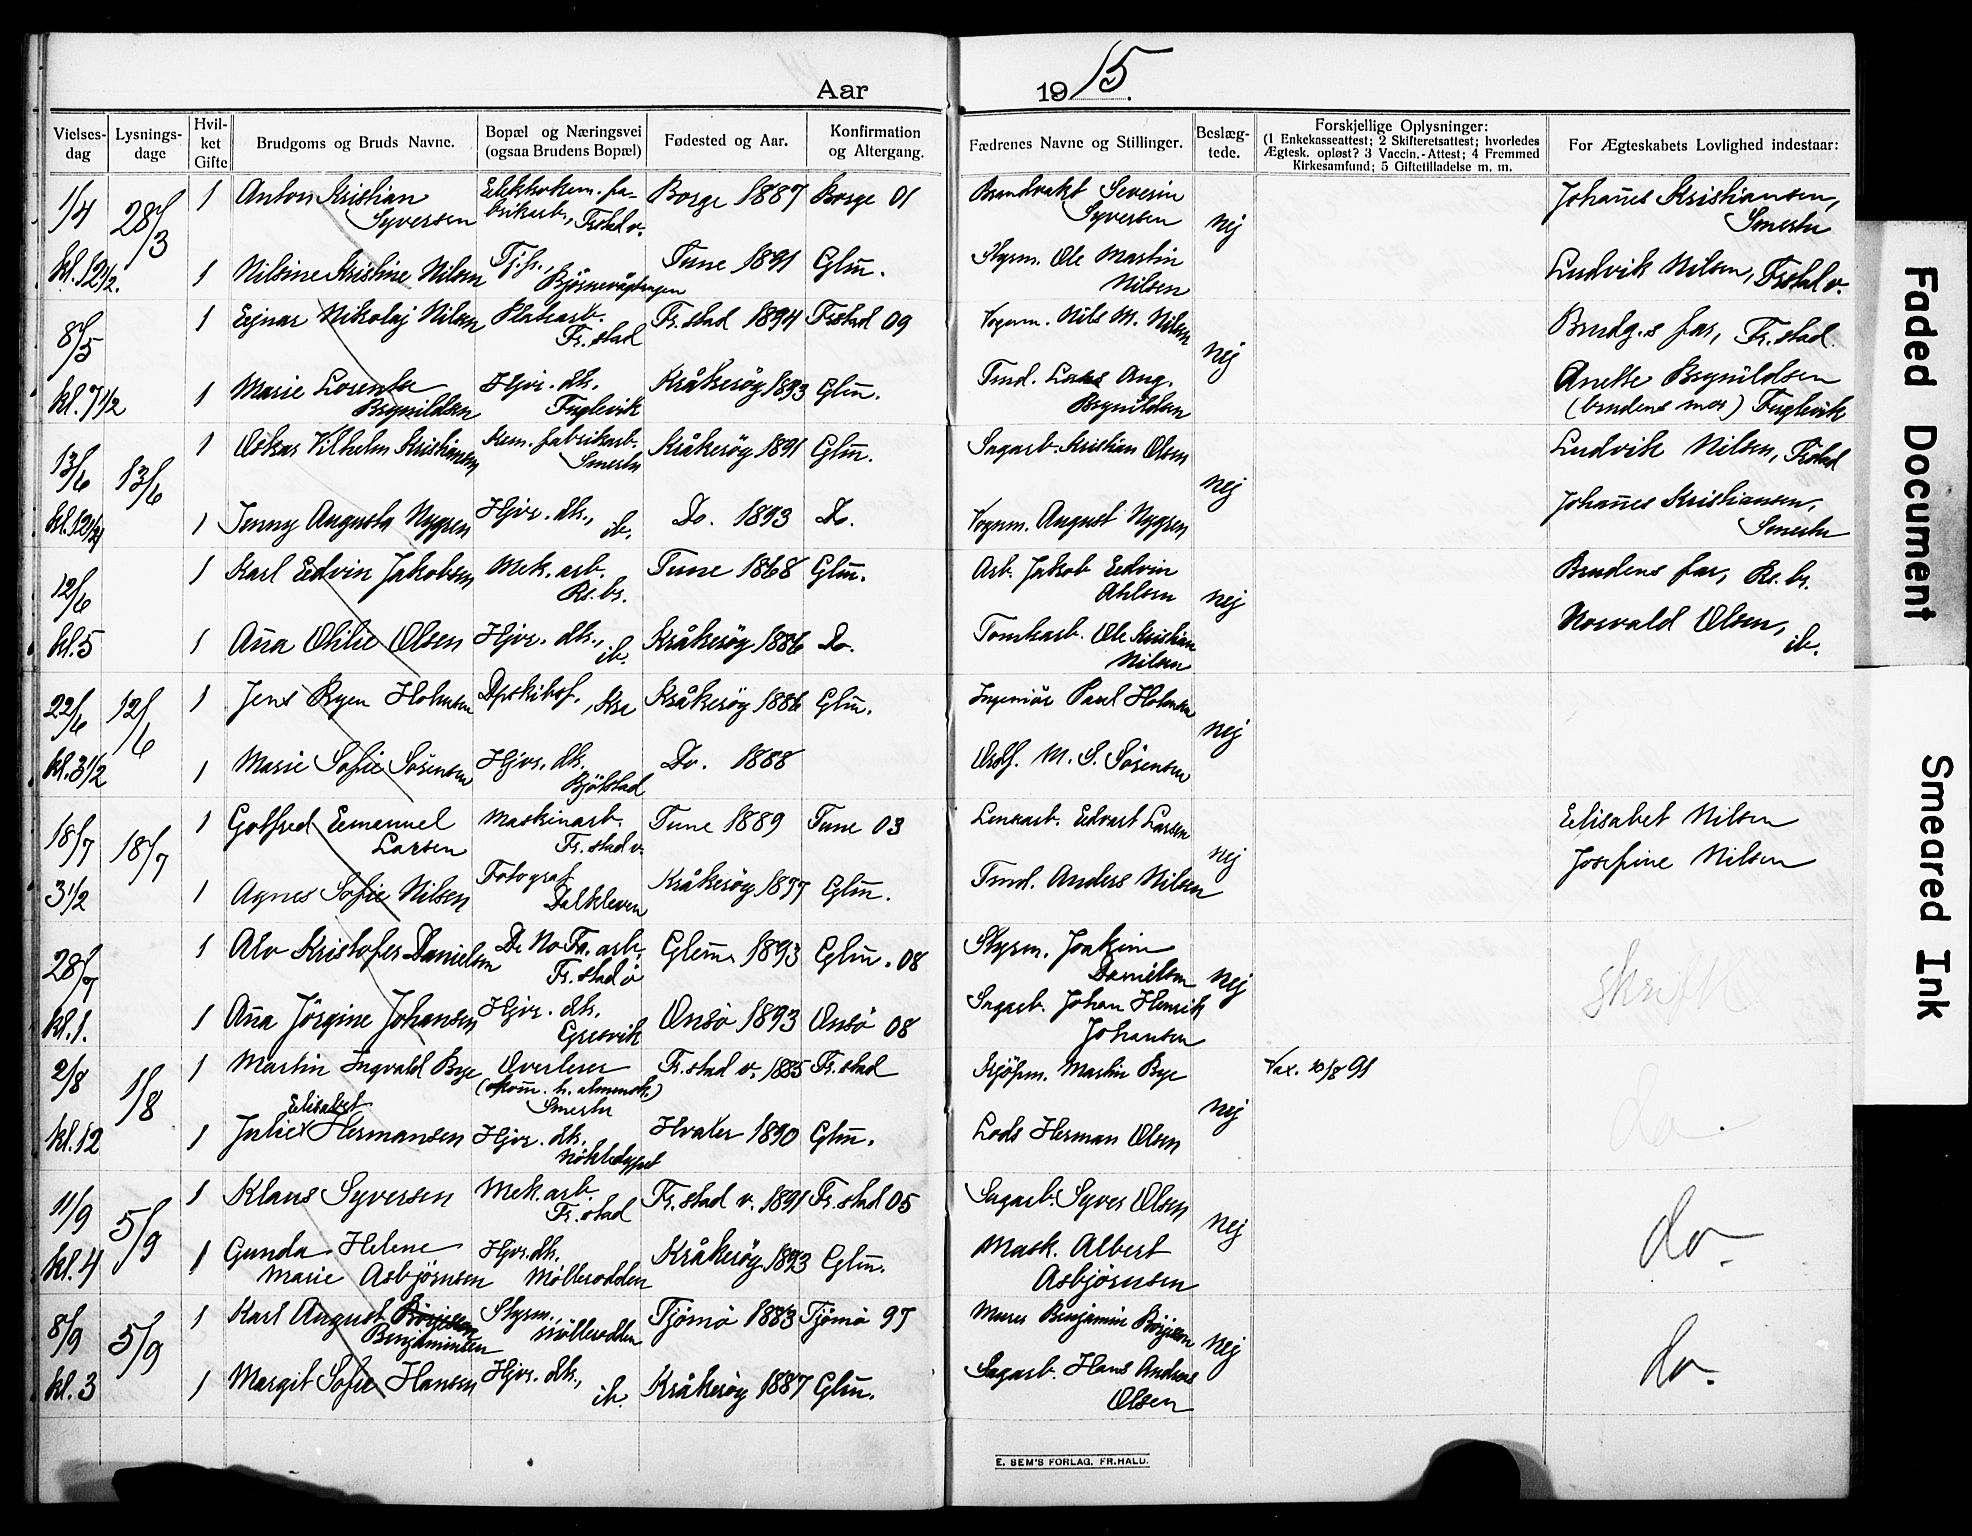 Aar 1915.
Vielses-dag Lysnings-dage Hvil-ket Gifte Brudgoms og Bruds Navne. Bopæl og Næringsvei (ogsaa Brudens Bopæl) Fødested og Aar. Konfirmation og Altergang. Fædrenes Navne og Stillinger. Beslæg-tede. Forskjellige Oplysninger: (1 Enkekasseattest; 2 Skifteretsattest; hvorledes Ægtesk. opløst? 3 Vaccin.-Attest; 4 Fremmed Kirkesamfund; 5 Giftetilladelse m. m. For Ægteskabets Lovlighed indestaar:
1/4 28/3 1 Anton Kristian Syversen Elektrokem. fabrikarb., Frstad v. Borge 1887 Borge 01 Brandvakt Severin Syversen nej Johañes Kristiansen, Smertu
kl. 12 1/2. 1 Nilsine Kristine Nilsen Tj.p., Bjørnevågtangen Tune 1891 Glm̃. Styrm. Ole Martin Nilsen Ludvik Nilsen, Frstad v.
8/5 1 Ejnar Nikolaj Nilsen Platearb. Fr.stad Fr.stad 1894 Frstad 09 Vognm. Nils M. Nilsen nej Brudg.s far, Fr.stad.
kl. 7 1/2 1 Marie Lorentse Brynildsen Hjvr. dtr. Fuglevik Kråkerøy 1893 Glm̃. Tmd. Lars Aug. Brynildsen Anette Brynildsen (brudens mor) Fuglevik
13/6 13/6 1 Oskar Vilhelm Kristiansen Kem. fabrikarb. Smertu Kråkerøy 1891 Glm̃. Sagarb. Kristian Olsen nej Ludvik Nilsen, Frstad
kl. 12 1/2 1 Jenny Augusta Nygren Hjvr. dtr., ib. Do. 1893 Do. Vognm. August Nygren Johañes Kristiansen, Smertu
12/6 1 Karl Edvin Jakobsen Mek. arb. Rs.br. Tune 1868 Glm̃. Arb. Jakob Edvin Ahlsen nej Brudens far, Rs. br.
kl. 5 1 Aña Othilie Olsen Hjvr. dtr., ib. Kråkerøy 1886 Do. Tomtearb. Ole Kristian Nilsen Norvald Olsen, ib.
22/6 12/6 1 Jens Ryen Holmsen Kra Kråkerøy 1886 Glm̃. Ingeniør Paul Holmsen nej
kl. 3 1/2 1 Marie Sofie Sørensen Hjvr. dtr. Bjølstad Do. 1888 M. S. Sørensen
18/7 18/7 1 Gotfred Emanuel Larsen Maskinarb. Fr.stad v. Tune 1889 Tune 03 Lensearb. Edvart Larsen nej Elisabet Nilsen
3 1/2 1 Agnes Sofie Nilsen Fotograf Dalkleven Kråkerøy 1897 Glm̃. Tmd. Anders Nilsen Josefine Nilsen
28/7 1 Alv Kristofer Danielsen De No Fa. arb. Fr.stad ø Glem̃. 1893 Glm̃. 08 Styrm. Joakim Danielsen nej skriftl
kl. 1. 1 Aña Jørgine Johansen Hjvr. dtr. Gresvik Onsø 1893 Onsø 08 Sagarb. Johan Henrik Johansen
2/8 1/8 1 Martin Ingvald Bye Overlærer (vkom̃. h. almensk.) Smertu Fr.stad v. 1885 Fr.stad Kjøpm. Martin Bye nej Vax. 10/8 91 do.
kl. 12 1 Julie Elisabet Hermansen Hjvr. dtr. Nøkledypet Hvaler 1890 Glm̃. Lods Herman Olsen
11/9 5/9 1 Klaus Syversen Mek. arb. Fr.stad Fr.stad v. 1891 Fr.stad 05 Sagarb. Syver Olsen nej do.
kl. 4 1 Gunda Helene Marie Asbjørnsen Hjvr. dtr. Møllerodden Kråkerøy 1893 Glm̃. Mask. Albert Asbjørnsen
8/9 5/9 1 Karl August Børjeson Benjaminsen Styrm., Møllerodden Tjømø 1883 Tjømø 97 Murer Benjamin Børjeson nej do.
kl. 3 1 Margit Sofie Hansen Hjvr. dtr., ib. Kråkerøy 1887 Glm̃. Sagarb. Hans Andreas Olsen
E. SEM'S FORLAG, FR.HALD.
Faded Document
Smeared Ink